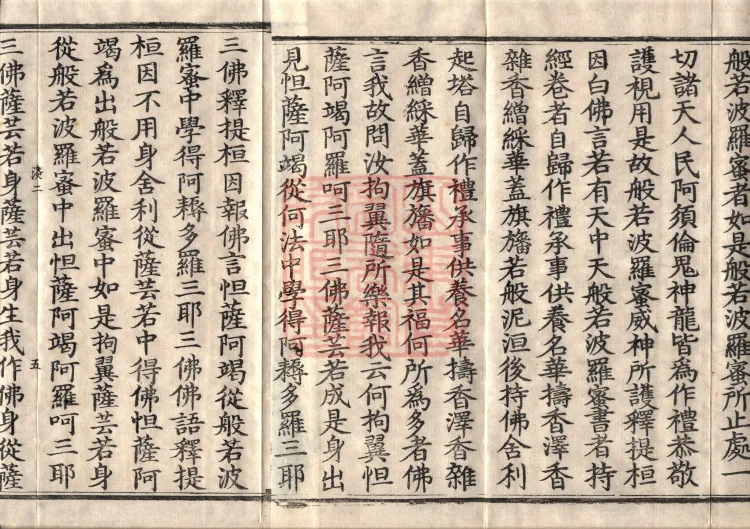 般若波羅蜜者如是般若波羅蜜所止處一
切諸天人民阿須倫鬼神龍皆為作禮恭敬
護視用是故般若波羅蜜威神所護釋提桓
因白佛言若有天中天般若波羅蜜書者持
經卷者自歸作禮承事供養名華擣香澤香
雜香繒綵華蓋旗旛若般泥洹後持佛舍利
起塔自歸作禮承事供養名華擣香澤香雜
香繒綵華蓋旗旛如是其福何所為多者佛
言我故問汝拘翼隨所樂報我云何拘翼怛
薩阿竭阿羅呵三耶三佛薩芸若成是身出
見怛薩阿竭從何法中學得阿耨多羅三耶
三佛釋提桓因報佛言怛薩阿竭從般若波
羅蜜中學得阿耨多羅三耶三佛佛語釋提
桓因不用身舍利從薩芸若中得佛怛薩阿
竭為出般若波羅蜜中如是拘翼薩芸若身
從般若波羅蜜中出怛薩阿竭阿羅呵三耶
湊二 五
三佛薩芸若身薩芸若身生我作佛身從薩